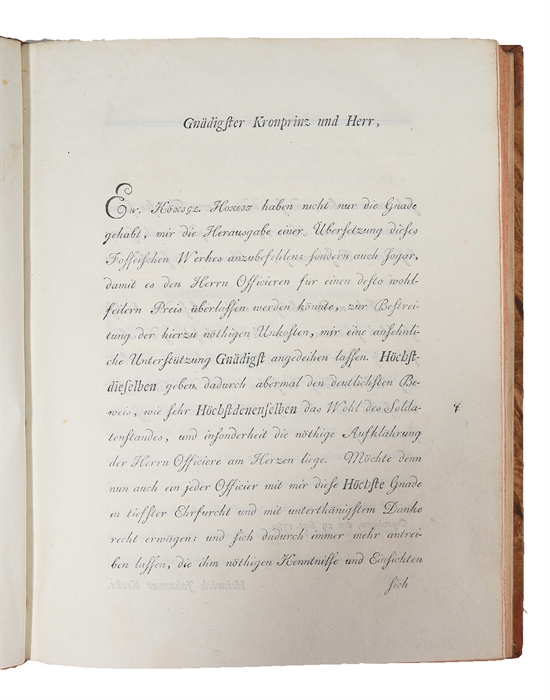 Gnädigster Kronprinz und Herr,
Ew. Königl. Hoheit haben nicht nur die Gnade
gehabt, mir die Herausgabe einer Übersetzung dieses
Fosseischen Werkes anzubefehlen; sondern auch sogar,
damit es den Herrn Officieren für einen desto wohl-
feilern Preis überlassen werden könnte, zur Bestrei-
tung der hierzu nöthigen Unkosten, mir eine ansehnli-
che Unterstützung Gnädigst angedeihen lassen. Höchst-
dieselben geben dadurch abermal den deutlichsten Be-
weis, wie sehr Höchstdenenselben das Wohl des Solda-
tenstandes, und insonderheit die nöthige Aufklährung
der Herrn Officiere am Herzen liege. Möchte denn
nun auch ein jeder Officier mit mir diese Höchste Gnade
in tiefster Ehrfurcht und mit unterthänigstem Danke
recht erwägen; und sich dadurch immer mehr antrei-
ben lassen, die ihm nöthigen Kenntnisse und Einsichten
sich